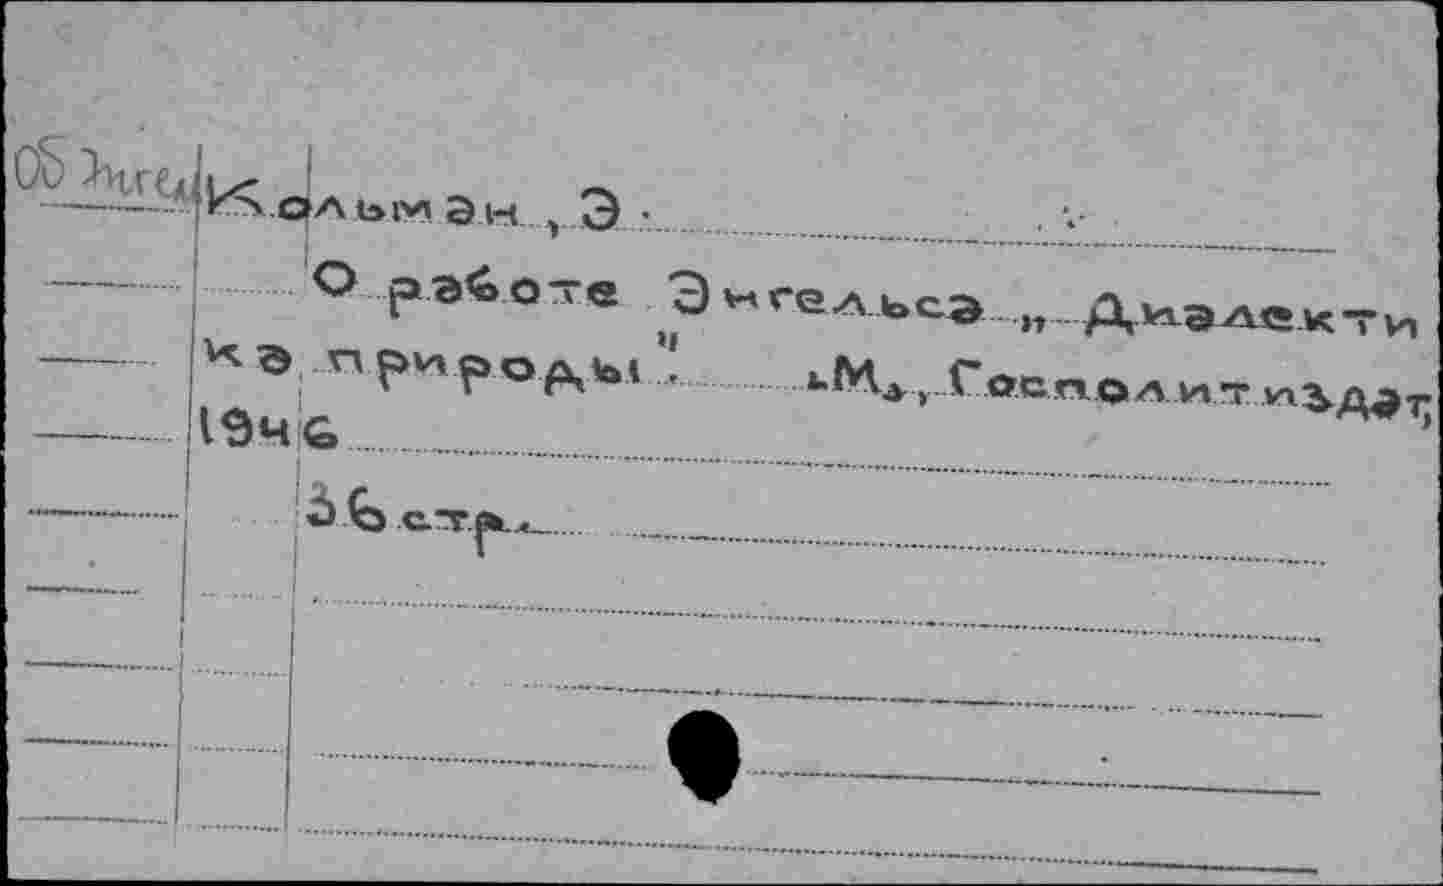 Об Энгел
Кольман, Э.
О работе Энгельса „Диалекти
ка природы". М., Госполитиздат,
1946
36 стр.